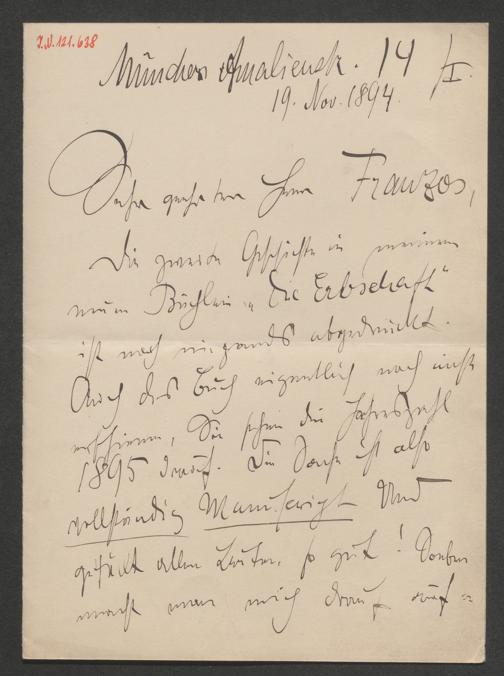 I.N. 121.638
München Amalienstr. 14/I.
19. Nov. 1894.
Sehr geehrter Herr Franzos,
Die zweite Geschichte in meinem
neuen Büchlein „Die Erbschaft“
ist noch nirgends abgedruckt.
Auch das Buch eigentlich noch nicht
erschienen, Sie sehen die Jahreszahl
1895 drauf. Die Sache ist also
vollständig Manuscript und
gefällt allen Leuten so gut! Soeben
macht man mich drauf auf=